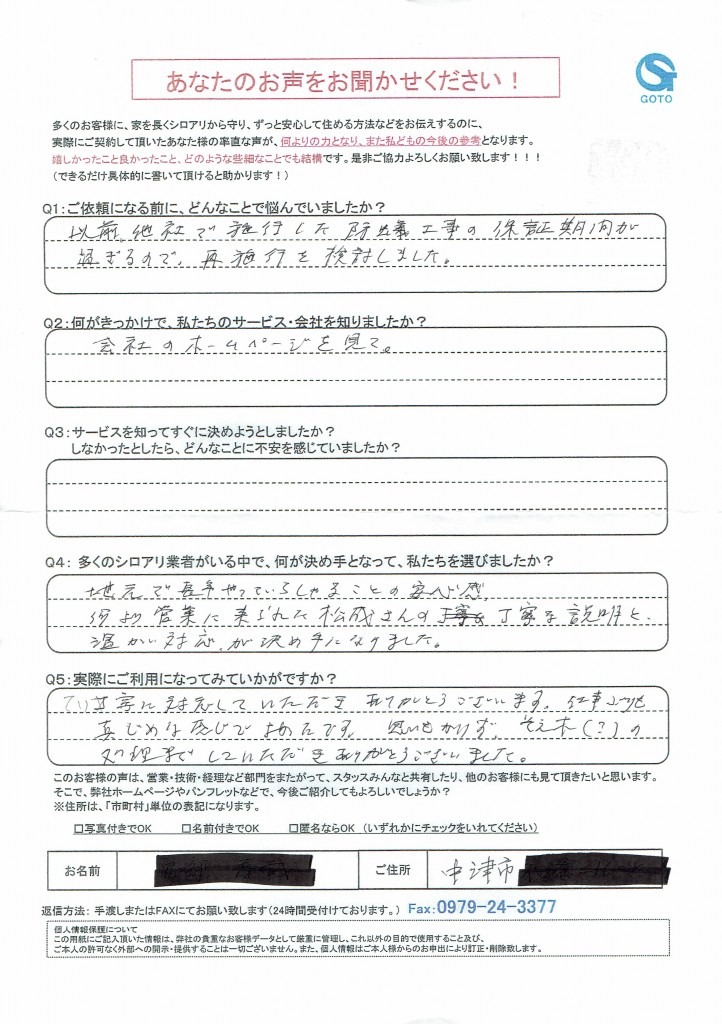 あなたのお声をお聞かせください！
GOTO
多くのお客様に、家を長くシロアリから守り、ずっと安心して住める方法などをお伝えするのに、
実際にご契約して頂いたあなた様の率直な声が、何よりの力となり、また私どもの今後の参考となります。
嬉しかったこと良かったこと、どのような些細なことでも結構です。是非ご協力よろしくお願い致します！！！
（できるだけ具体的に書いて頂けると助かります！）
Q1：ご依頼になる前に、どんなことで悩んでいましたか？
以前、他社で施行した防蟻工事の保証期間が
過ぎるので、再施行を検討しました。
Q2：何がきっかけで、私たちのサービス・会社を知りましたか？
会社のホームページを見て。
Q3：サービスを知ってすぐに決めようとしましたか？
しなかったとしたら、どんなことに不安を感じていましたか？
Q4： 多くのシロアリ業者がいる中で、何が決め手となって、私たちを選びましたか？
地元で長年やっていらしゃることの安心感
何より営業に来られた松成さんの丁寧な説明と、
温かい対応が決め手になりました。
Q5：実際にご利用になってみていかがですか？
てい寧に対応していただきありがとうございます。仕事ぶりも
真じめな感じでよかったです。思いもかけず、そえ木（？）の
処理までしていただきありがとうございました。
このお客様の声は、営業・技術・経理など部門をまたがって、スタッスみんなと共有したり、他のお客様にも見て頂きたいと思います。
そこで、弊社ホームページやパンフレットなどで、今後ご紹介してもよろしいでしょうか？
※住所は、「市町村」単位の表記になります。
□写真付きでOK □名前付きでOK □匿名ならOK （いずれかにチェックをいれてください）
お名前 ご住所 中津市
返信方法： 手渡しまたはFAXにてお願い致します（24時間受付けております。） Fax:0979-24-3377
個人情報保護について
この用紙にご記入頂いた情報は、弊社の貴重なお客様データとして厳重に管理し、これ以外の目的で使用すること及び、
ご本人の許可なく外部への開示・提供することは一切ございません。また、個人情報はご本人様からのお申出により訂正・削除致します。